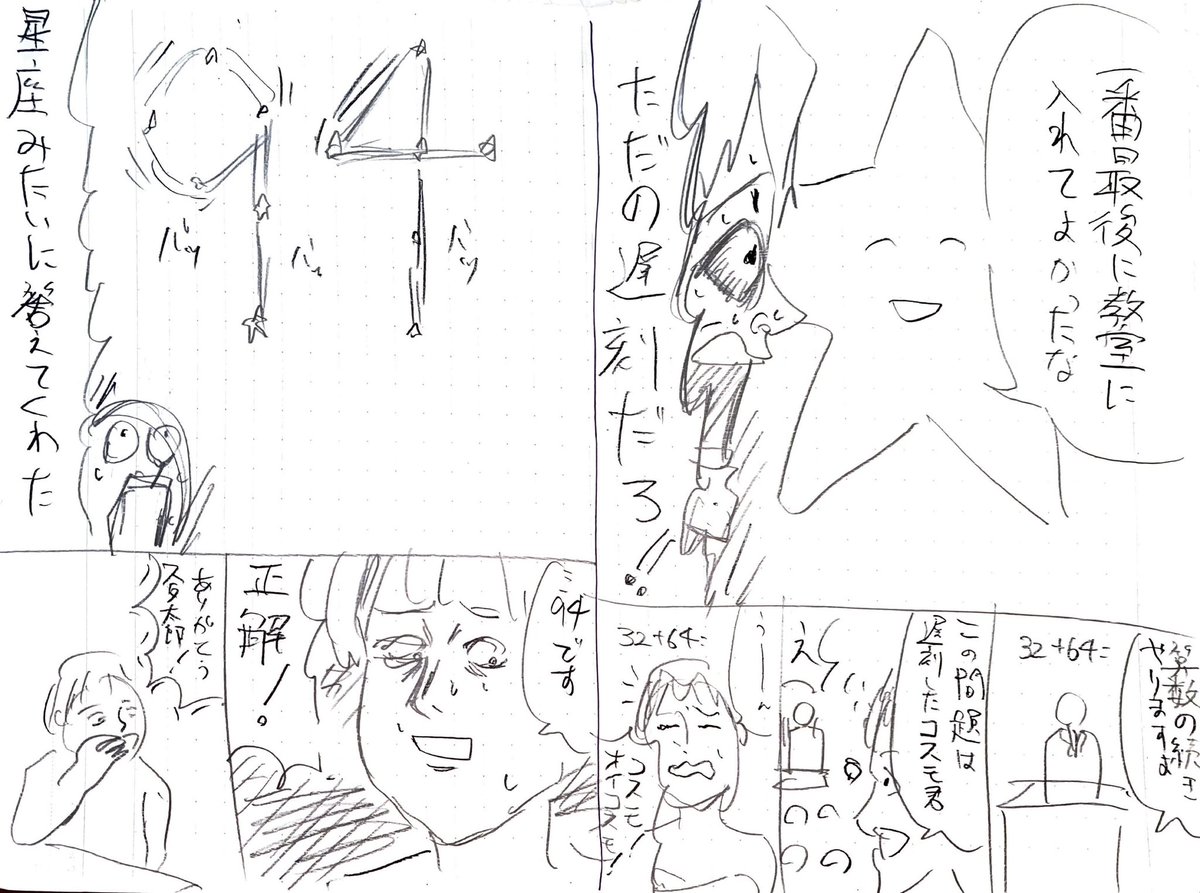 一番最後に教室に
入れてよかったな
ただの遅刻だろ!!
算数の続き
やりますよ
32+64=
この問題は
遅刻したコスモ君
え
うーん
32+64=
コスモ!
オイコスモ!
バッ
バッ
バッ
星座みたいに答えてくれた
94です
正解!
ありがとう